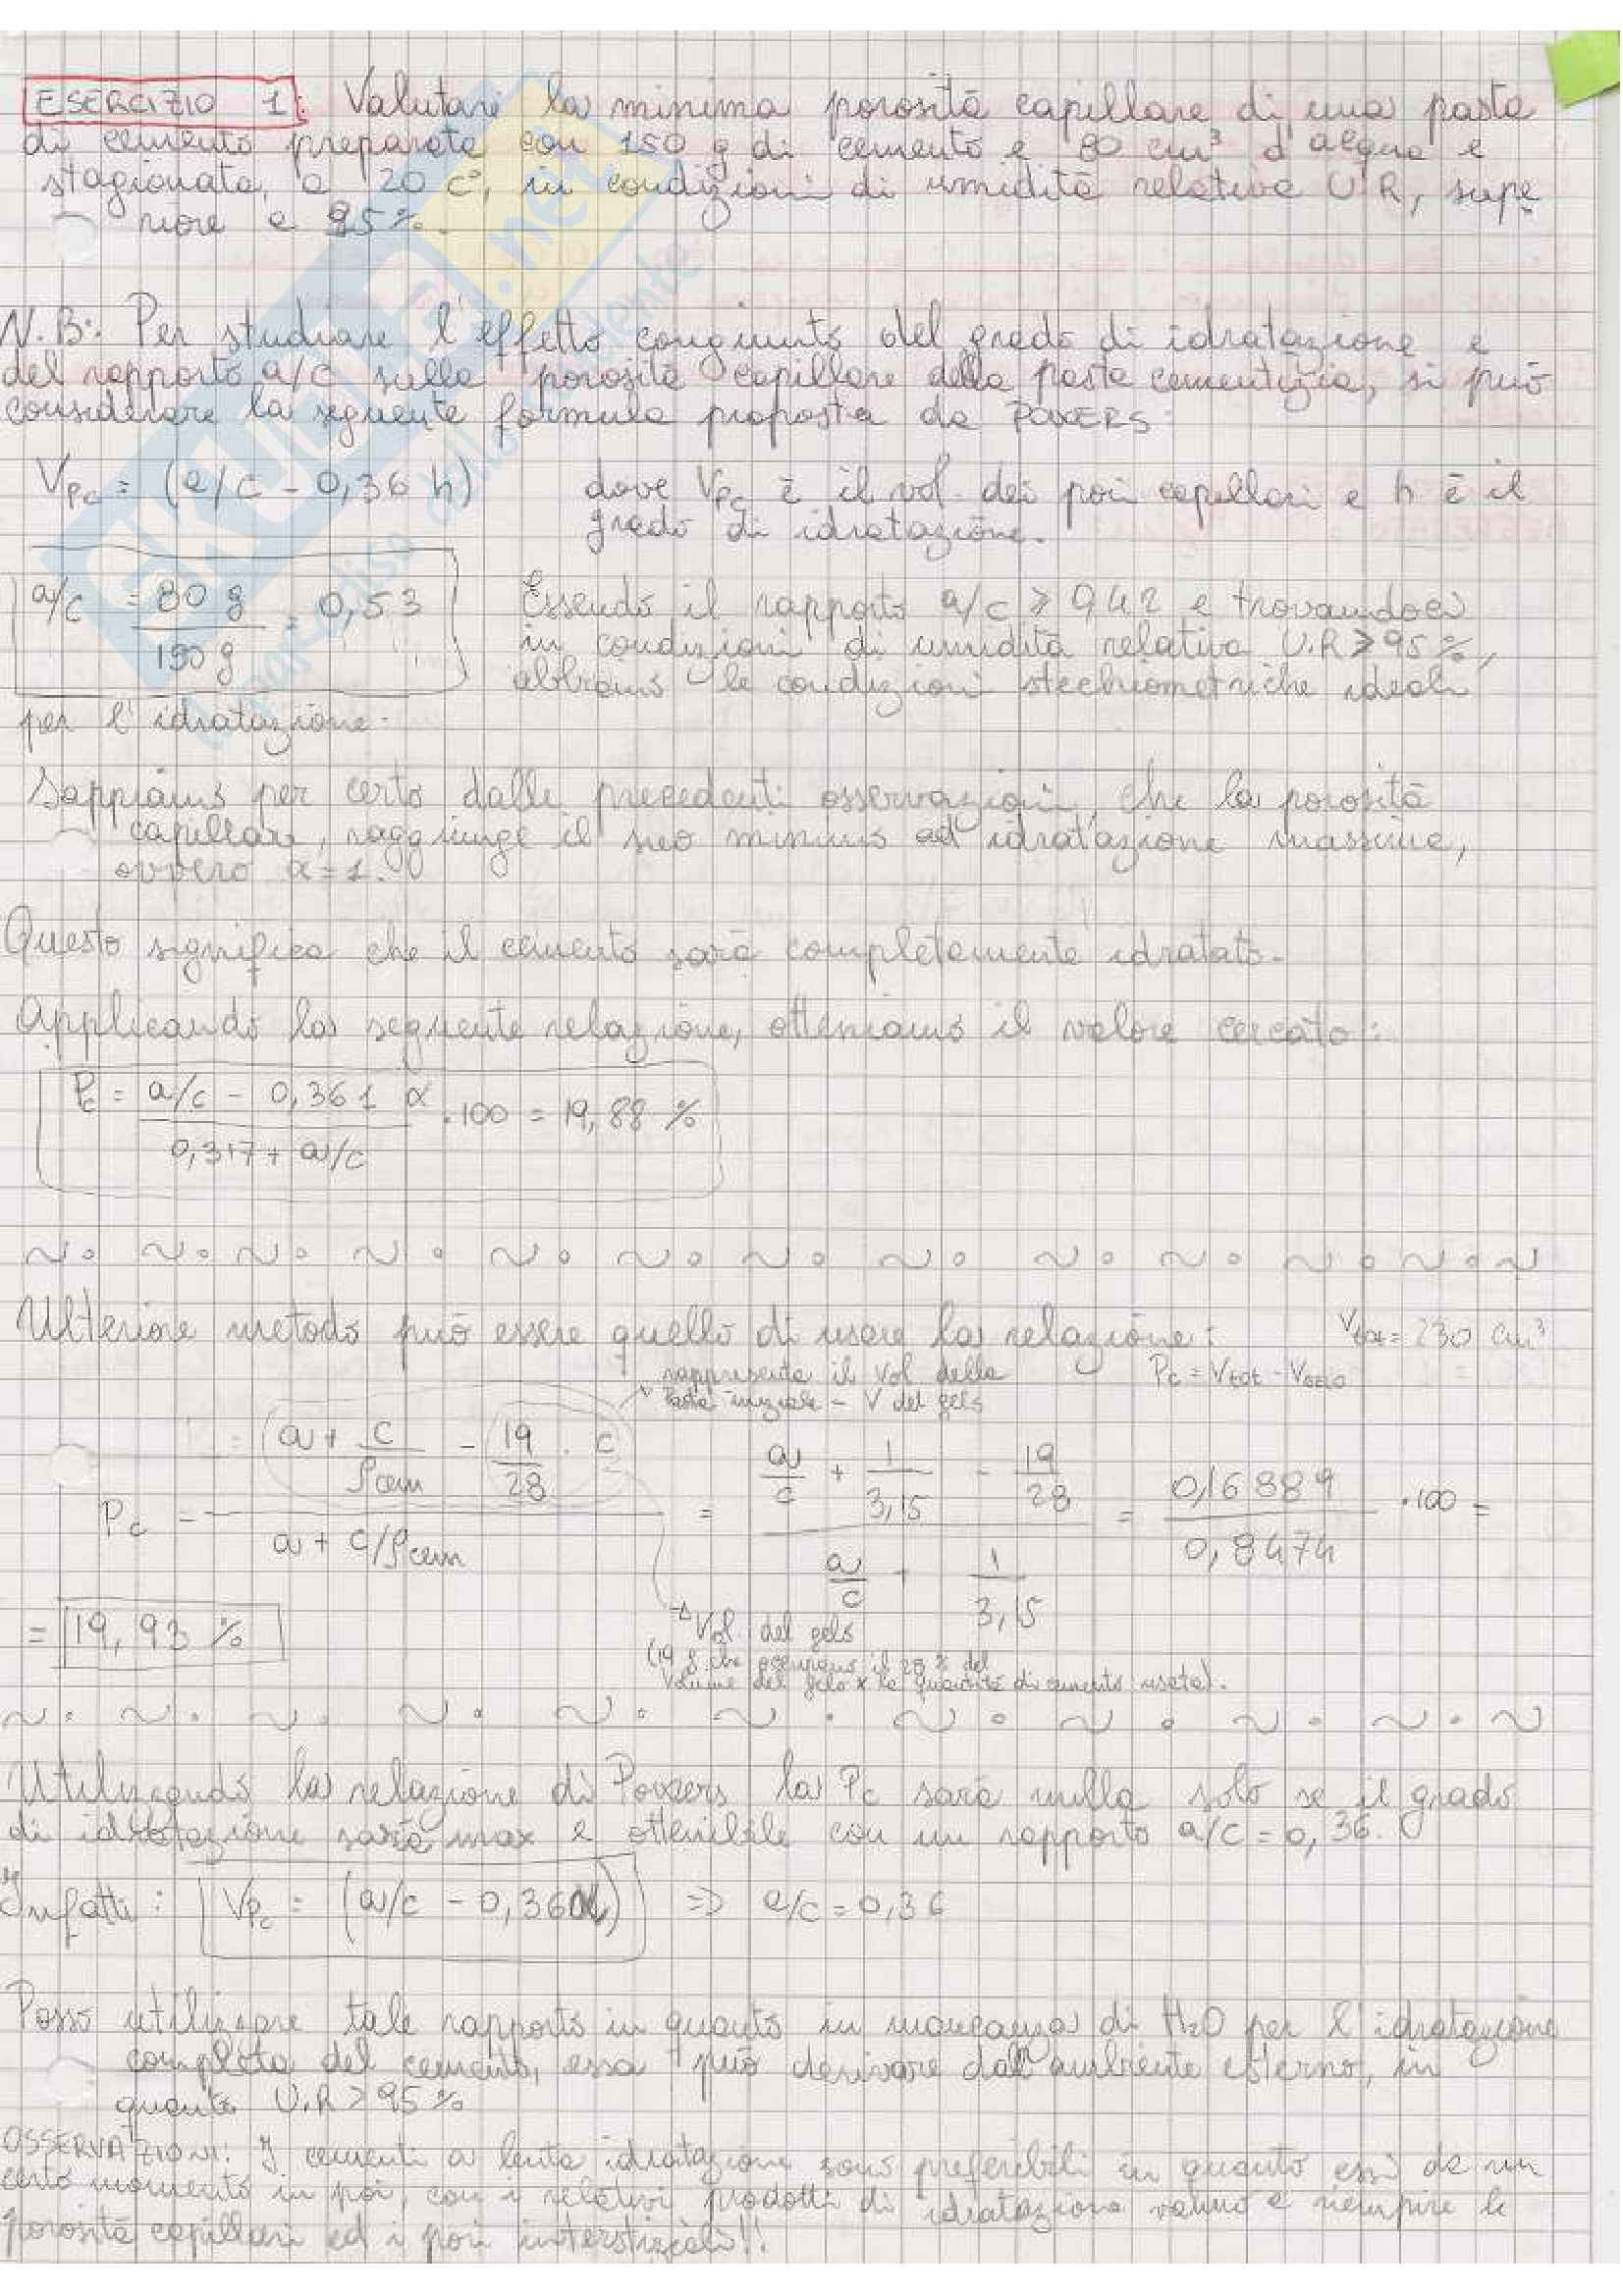 ESERCIZIO 1: Valutare la minima porosità capillare di una pasta
di cemento preparata con 150 g di cemento e 80 cm³ d'acqua e
stagionata, a 20 C°, in condizioni di umidità relativa U.R, supe
riore a 95%.
N.B: Per studiare l'effetto congiunto del grado di idratazione e
del rapporto a/c sulla porosità capillare della pasta cementizia, si può
considerare la seguente formula proposta da POWERS:
Vpc = (a/c - 0,36 h) dove Vpc è il vol. dei pori capillari e h è il
grado di idratazione.
a/c = 80 g / 150 g = 0,53 Essendo il rapporto a/c ≥ 0,42 e trovandoci
in condizioni di umidità relativa U.R ≥ 95%,
abbiamo le condizioni stechiometriche ideali
per l'idratazione.
Sappiamo per certo dalle precedenti osservazioni, che la porosità
capillare, raggiunge il suo minimo ad idratazione massima,
ovvero α = 1.
Questo significa che il cemento sarà completamente idratato.
Applicando la seguente relazione, otteniamo il valore cercato:
Pc = (a/c - 0,361 α) / (0,317 + a/c) · 100 = 19,88 %
Ulteriore metodo può essere quello di usare la relazione: Vtot = 230 cm³
rappresenta il vol della Pc = Vtot - VGELO
Pasta iniziale - V del gelo
Pc = (a + c/ρcem - 19/28 · c) / (a + c/ρcem) = (a/c + 1/3,15 - 19/28) / (a/c + 1/3,15) = 0,16889 / 0,8474 · 100 =
= 19,93 %
Vol del gelo
(19 g che occupano il 28 % del
Volume del gelo x la quantità di cemento usata).
Utilizzando la relazione di Powers la Pc sarà nulla solo se il grado
di idratazione sarà max e ottenibile con un rapporto a/c = 0,36.
Infatti: Vpc = (a/c - 0,36α) => a/c = 0,36
Posso utilizzare tale rapporto in quanto in mancanza di H2O per l'idratazione
completa del cemento, essa può derivare dall'ambiente esterno, in
quanto U.R > 95%
OSSERVAZIONI: I cementi a lenta idratazione sono preferibili in quanto essi da un
certo momento in poi, con i relativi prodotti di idratazione vanno a riempire le
porosità capillari ed i pori interstiziali!!